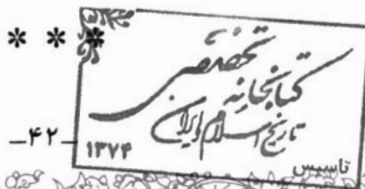 * * *
کتابخانه تخصصی
تاریخ اسلام و ایران
-۴۲-
۱۳۷۴
تاسیس